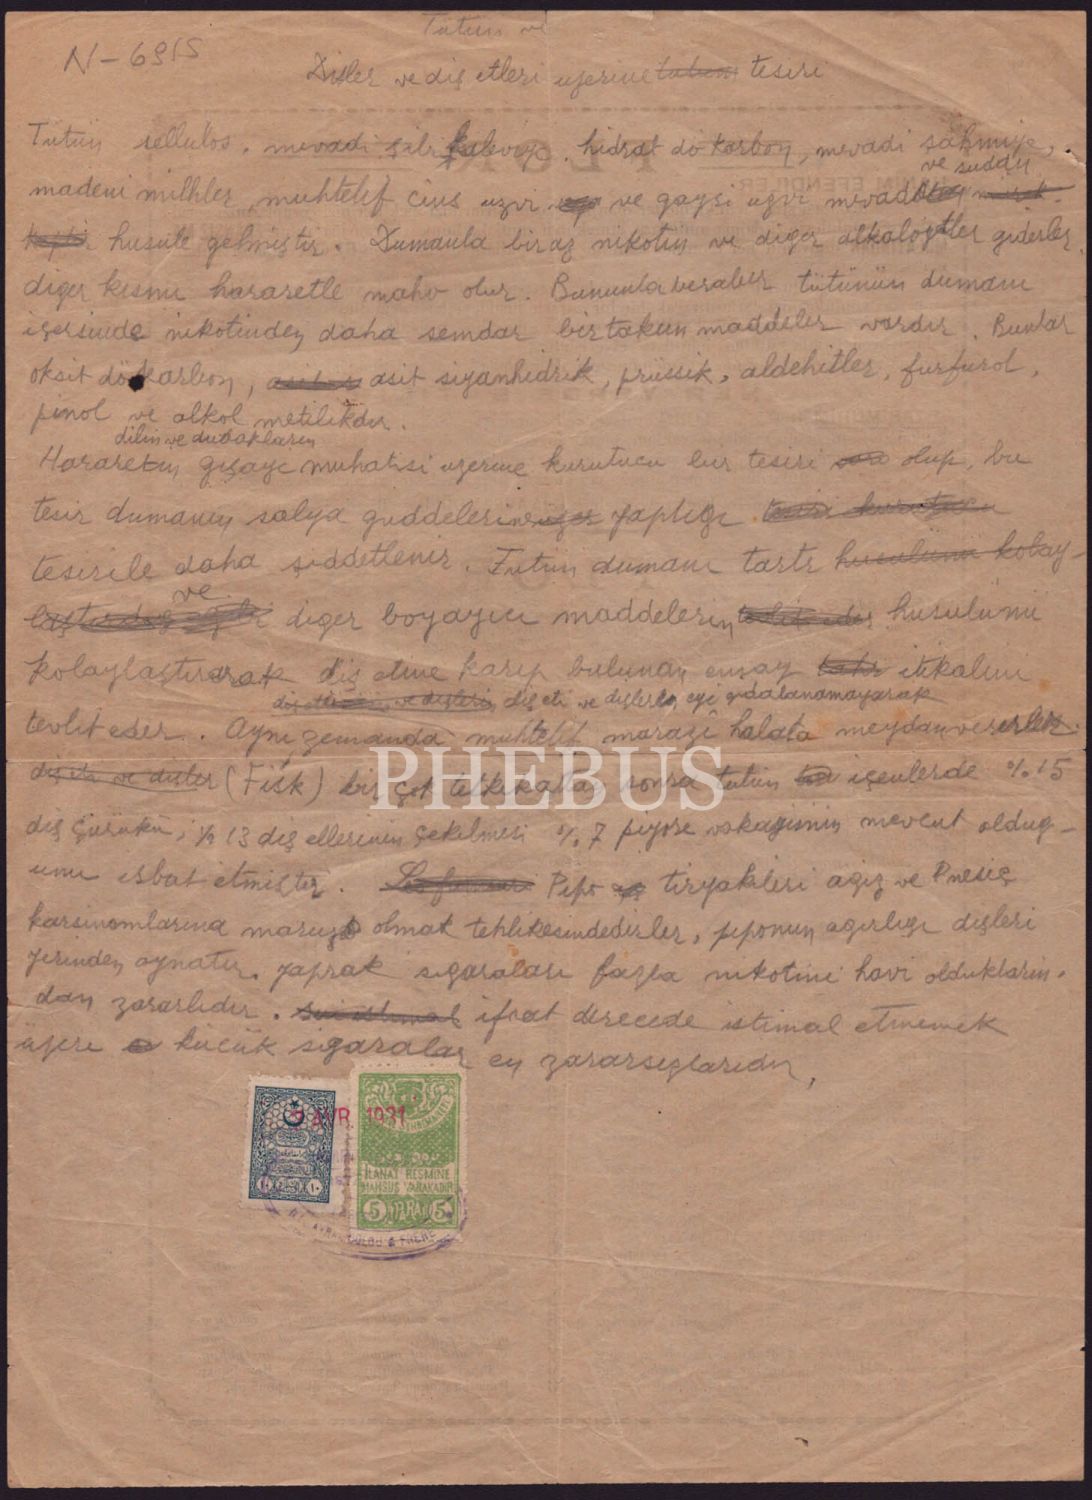 N-6915
Tütün ve
Dişler ve diş etleri uzerine tütün tesiri
Tütün sellulos, mevadi kaleviye, hidrat dö karbon, mevadi şahmiye,
ve sudan
madeni milhler, muhtelif cins uzvi ve gayri uzvi mevaddan
husule gelmiştir. Dumanla biraz nikotin ve diğer alkaloitler giderler,
diger kısmı hararetle mahv olur. Bununla beraber tütünün dumanı
içersinde nikotinden daha semdar bir takım maddeler vardır. Bunlar
oksit dö karbon, asit siyanhidrik, prüssik, aldehitler, furfurol,
pinol ve alkol metilikdır.
dilin ve dudakların
Hararetin gışayi muhatisi uzerine kurutucu bir tesiri olup, bu
tesir dumanın salya guddelerine yaptıgı tesiri kurutucu
tesirile daha şiddetlenir. Tutun dumanı tartr husulünu kolay-
laştırdıg ve diger boyayıcı maddelerin husulünü
kolaylaştırarak diş etine karıp bulunan ensay itikalını
diş eti ve dişlerin eyi gıdalanamayarak
tevlit eder. Ayni zemanda muhtelif marazi halata meydan verirler.
diş eti ve dişler (Fisk) bir çok tetkikattan sonra tutun içenlerde % 15
diş çürükü, % 13 diş etlerinin çekilmesi % 7 piyore vakayiinin mevcut oldug-
unu isbat etmiştir. Pipo tiryakileri agız ve
karsinomlarına maruz olmak tehlikesindedirler, piponun agırlıgı dişleri
yerinden oynatır. yaprak sıgaraları fazla nikotini havi olduklarin-
dan zararlıdır. sui istimal ifrat derecede istimal etmemek
üzere küçük sıgaralar en zararsızlarıdır.
PHEBUS
2 AVR. 1931
İLANAT RESMİNE
MAHSUS VARAKADIR
5 PARA 5
& FRÈRE